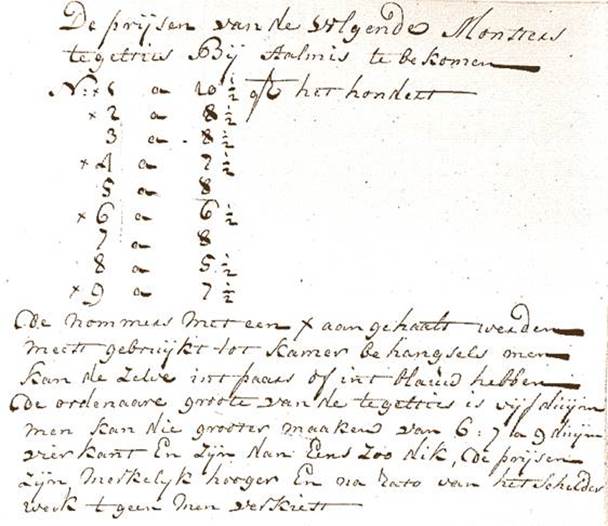 De prijsen van de volgende Monsters
tegelties Bij Aalmis te bekomen
N: x 1 a 10 ½ het hondert
x 2 a 8 ½
3 a 8 ½
x 4 a 7 ½
5 a 8
x 6 a 6 ½
7 a 8
8 a 5 ½
x 9 a 7 ½
De nommers met een x aangehaalt werden
meest gebruijkt tot kamer behangsels men
kan de zelve int paars of int blauw hebben
De ordenaare groote van de tegelties is vijf duijm
men kan die grooter maaken van 6:7 a 9 duijm
vierkant En zijn dan Eens Zoo dik, De prijsen
zijn, merkelyk hooger En na rato van het schilder
werk t geen men verkiest